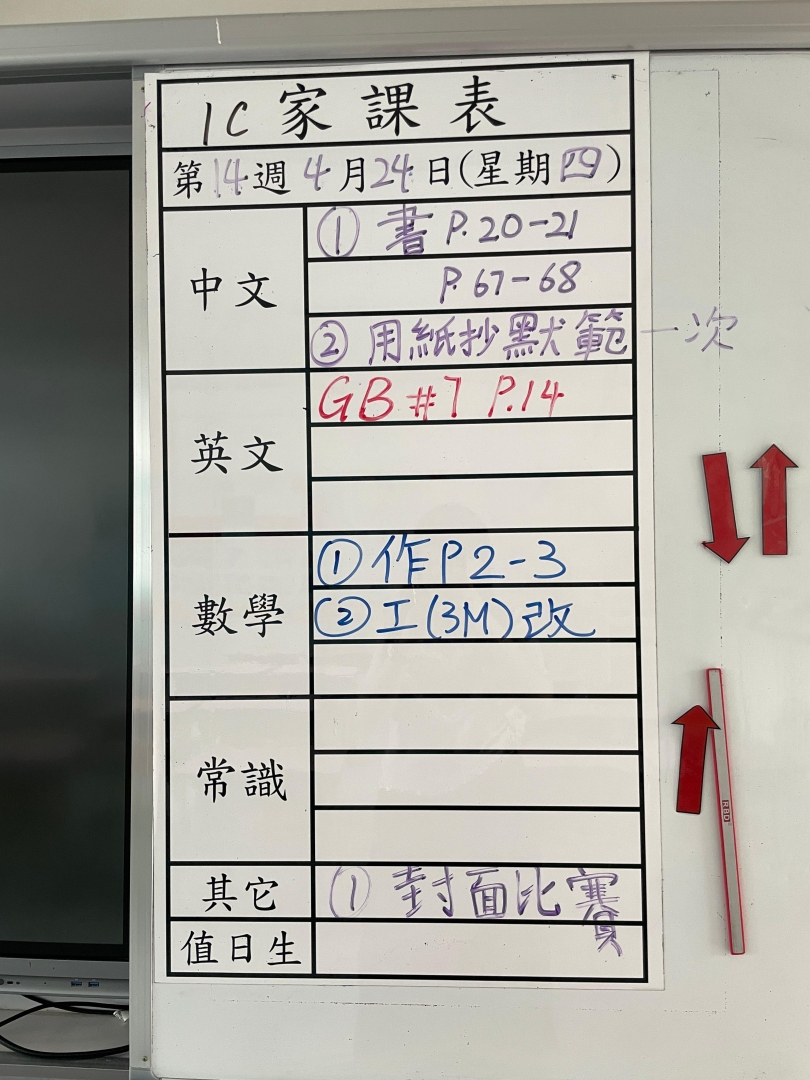 1C 家課表
第14週 4月24日(星期四)
中文
① 書 P.20-21
P.67-68
② 用紙抄默範一次
英文
GB #7 P.14
數學
① 作 P2-3
② 工(3M)改
常識
其它
① 封面比賽
值日生
RBD